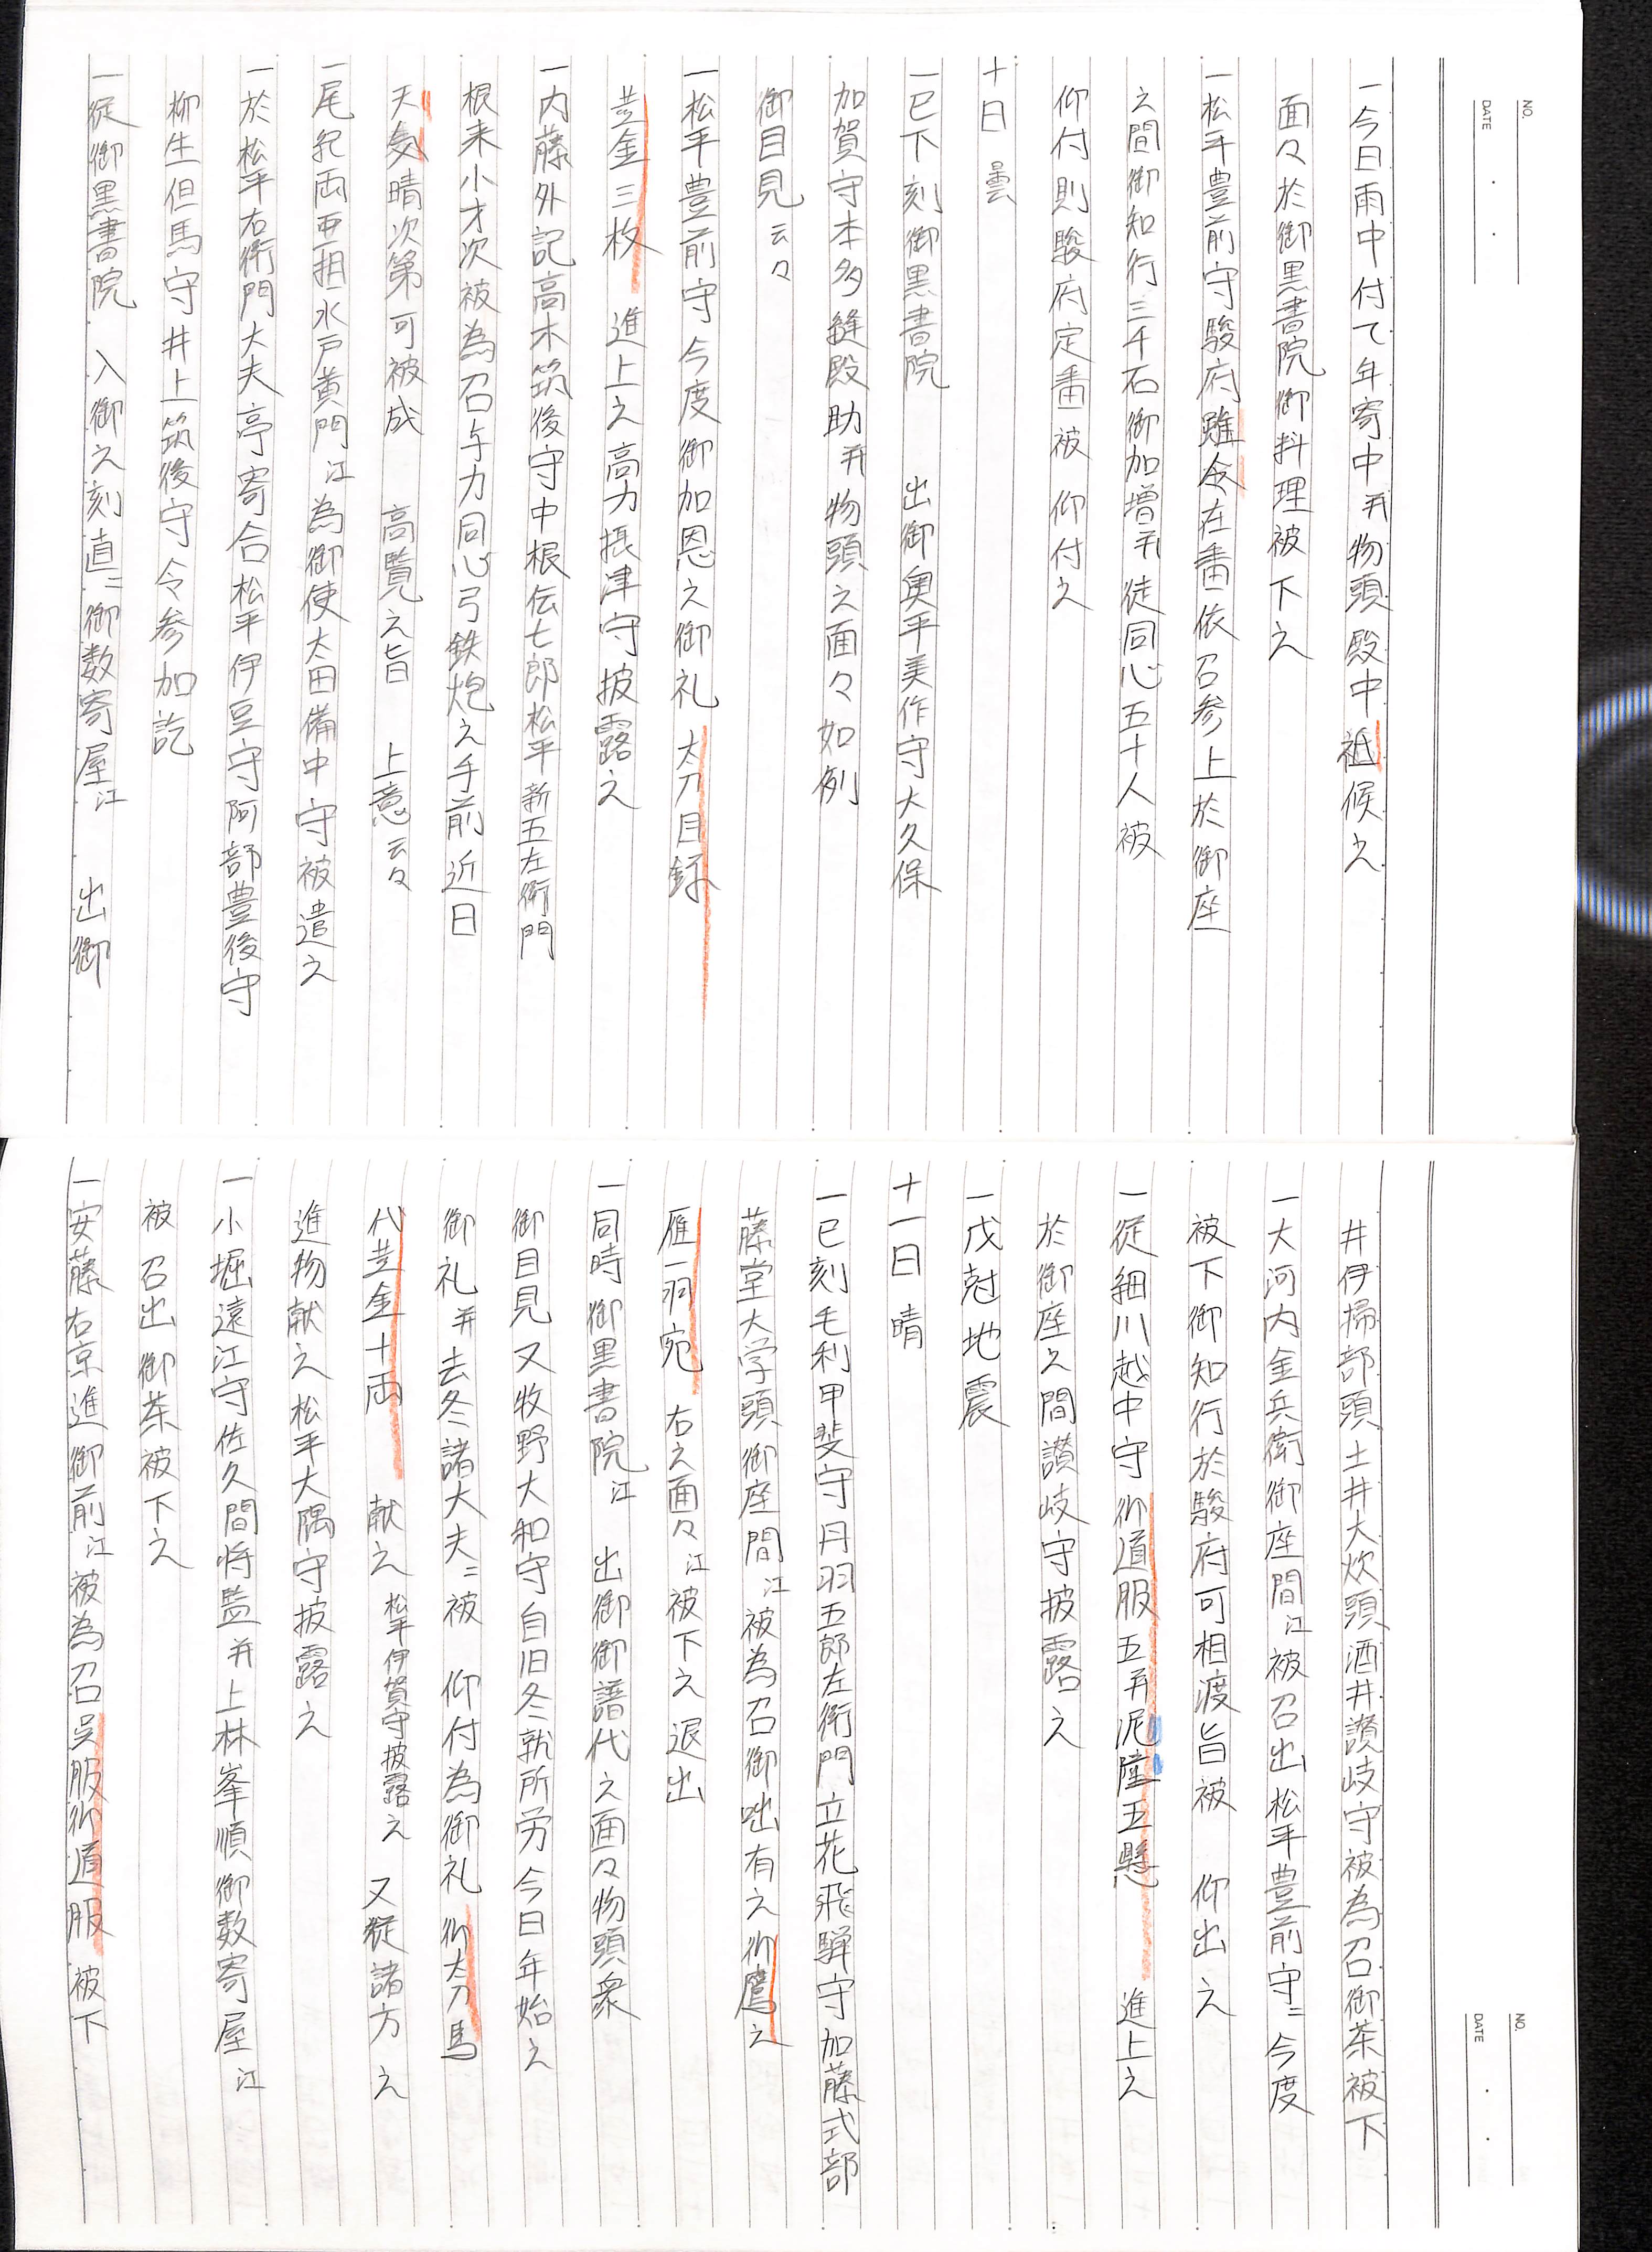 NO.
DATE
一今日雨中付て年寄中并物頭殿中祗候之
面々於御黒書院御料理被下之
一松平豊前守駿府雖令在番依召参上於御座
之間御知行三千石御加増并徒同心五十人被
仰付則駿府定番被 仰付之
十日 曇
一巳下刻御黒書院 出御奥平美作守大久保
加賀守本多縫殿助并物頭之面々如例
御目見云々
一松平豊前守今度御加恩之御礼 太刀目録
黄金三枚 進上之高力摂津守披露之
一内藤外記高木筑後守中根伝七郎松平新五左衛門
根来小才次被為召与力同心弓鉄炮之手前近日
天気晴次第可被成 高覧之旨 上意云々
一尾紀両亜相水戸黄門江為御使太田備中守被遣之
一於松平右衛門大夫亭寄合松平伊豆守阿部豊後守
柳生但馬守井上筑後守令参加訖
一従御黒書院 入御之刻直ニ御数寄屋江 出御
NO.
DATE
井伊掃部頭土井大炊頭酒井讃岐守被為召御茶被下
一大河内金兵衛御座間江被召出松平豊前守ニ今度
被下御知行於駿府可相渡旨被 仰出之
一従細川越中守御道服五并泥障五懸 進上之
於御座之間讃岐守披露之
一戊尅地震
十一日 晴
一巳刻毛利甲斐守丹羽五郎左衛門立花飛騨守加藤式部
藤堂大学頭御座間江被為召御咄有之御鷹之
雁一羽宛 右之面々江被下之退出
一同時御黒書院江 出御御譜代之面々物頭衆
御目見又牧野大和守自旧冬就所労今日年始之
御礼并去冬諸大夫ニ被 仰付為御礼 御太刀馬
代黄金十両 献之松平伊賀守披露之 又従諸方之
進物献之松平大隅守披露之
一小堀遠江守佐久間将監并上林峯順御数寄屋江
被召出御茶被下之
一安藤右京進御前江被為召呉服御道服被下